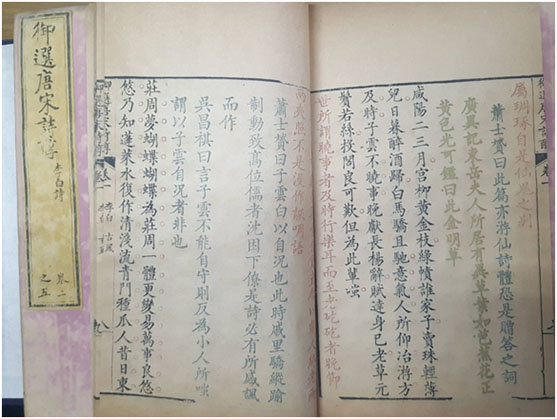 屬琱琢自是仙思之別
蕭士贇曰此篇亦將仙詩體恐是贈答之詞
廣異記東岳夫人所居有異草葉如芭蕉花正
黃色光可鑑曰此金明草
咸陽二三月宮柳黃金枝綠幘誰家子賣珠輕薄
兒日暮醉酒歸白馬驕且馳意氣人所仰冶游方
及時子雲不曉事晚獻長楊辭賦達身已老草元
鬢若絲投閣良可歎但為此輩嗤
世所謂曉事者及時行樂耳而至
不是漫作嘲語
蕭士贇曰子雲白以自況也此時戚里驕縱踰
制動致高位儒者沈困下僚是詩必有所感諷
而作
吳昌祺曰言子雲不能自守則反為小人所嗤
謂以子雲自況者非也
莊周夢蝴蝶蝴蝶為莊周一體更變易萬事良悠
悠乃知蓬萊水復作清淺流青門種瓜人昔日東
御選唐宋詩醇
卷一
李白
古風
御選唐宋詩醇
李白詩
之五